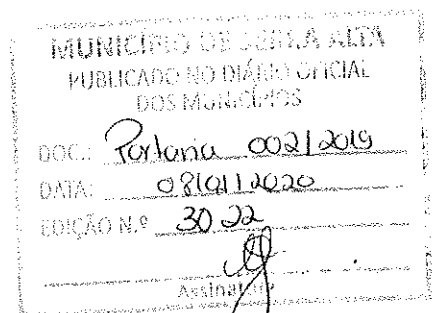 MUNICÍPIO DE SERRA ALTA
PUBLICADO NO DIÁRIO OFICIAL
DOS MUNICÍPIOS
DOC.: Portaria 002/2019
DATA: 08/01/2020
EDIÇÃO N.º 3022
Assinatura